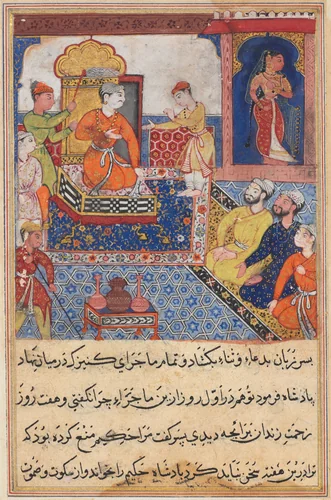 پس زبان بدعاء و ثناء بکشاد و تمام ماجرای کنیزک در میان نهاد
پادشاه فرمود تو هم در اول روز ازین ماجراء چرا نگفتی و هفت روز
زحمت زندان برایچه دیدی پسر گفت مرا حکیم منع کرده بود که
ترا درین هفته سخن نباید کرد پادشاه حکیم را بخواند و از سکوت و صموت